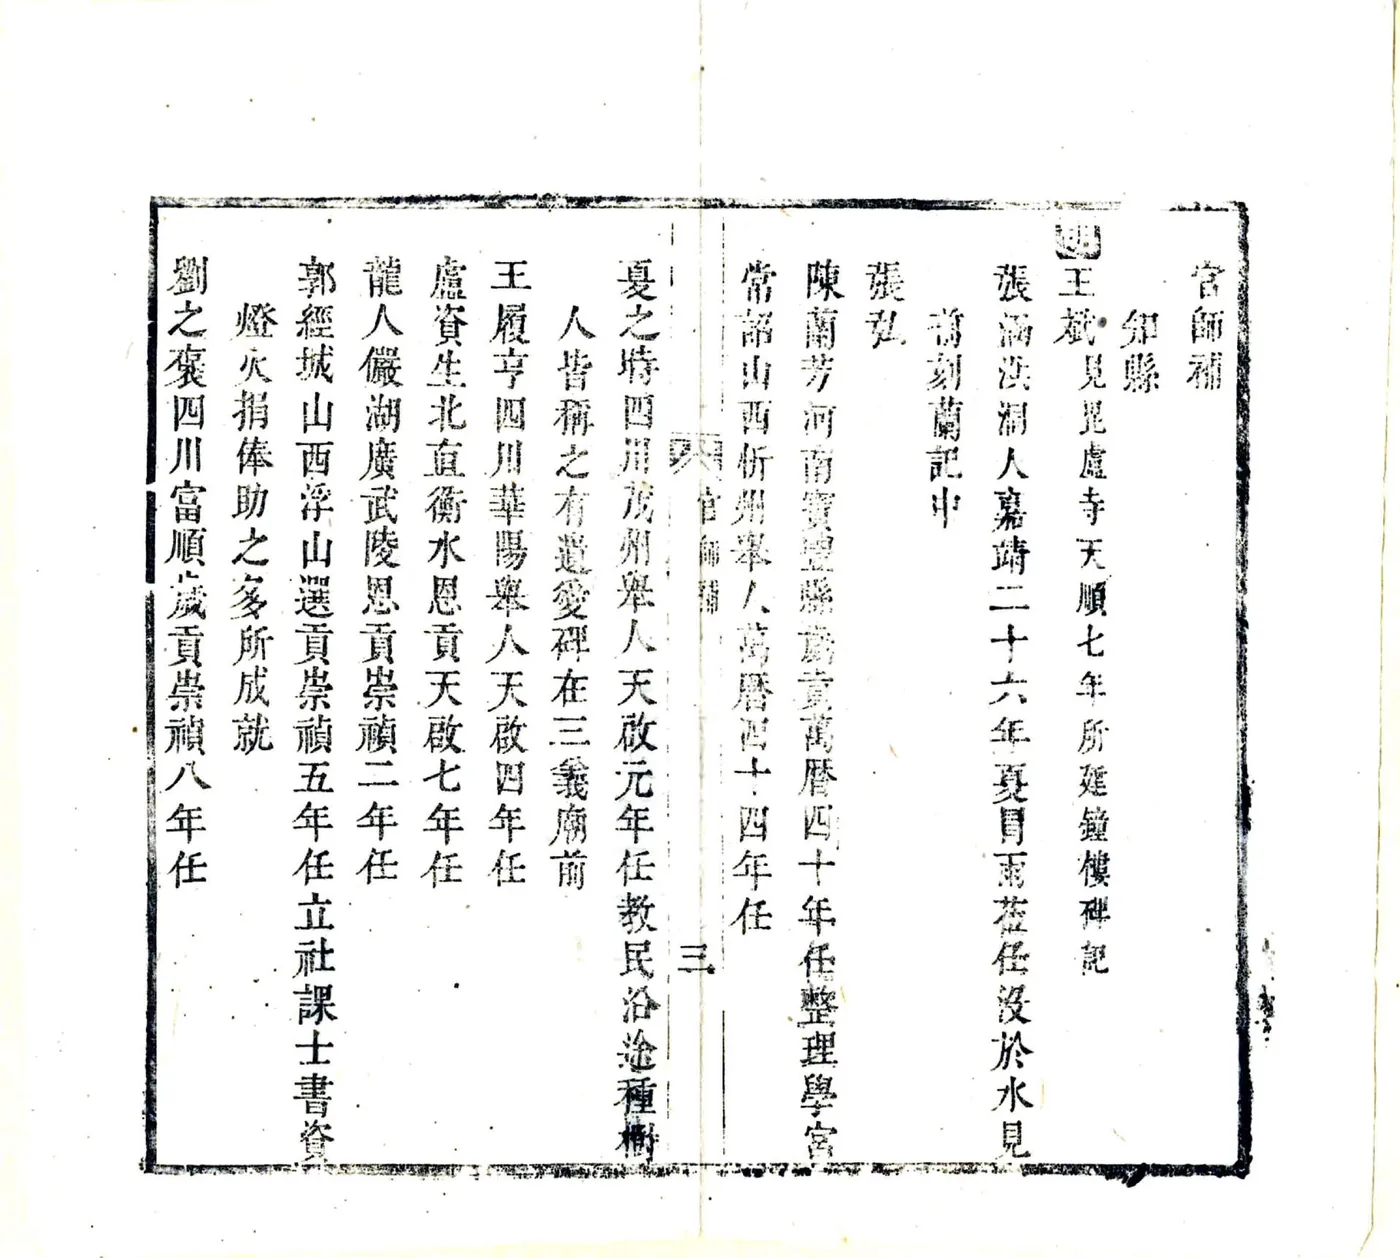 官師補
知縣
明
王斌見毘盧寺天順七年所建鐘樓碑記
張涵洪洞人嘉靖二十六年夏冒雨蒞任沒於水見
舊刻蘭記中
張弘
陳蘭芳河南寶豐縣歲貢萬曆四十年任整理學宮
常詔山西忻州舉人萬曆四十四年任
官師補
三
夏之時四川茂州舉人天啟元年任教民沿途種樹
人皆稱之有遺愛碑在三義廟前
王履亨四川華陽舉人天啟四年任
盧資生北直衡水恩貢天啟七年任
龍人儼湖廣武陵恩貢崇禎二年任
郭經城山西浮山選貢崇禎五年任立社課士書資
燈火捐俸助之多所成就
劉之褒四川富順歲貢崇禎八年任